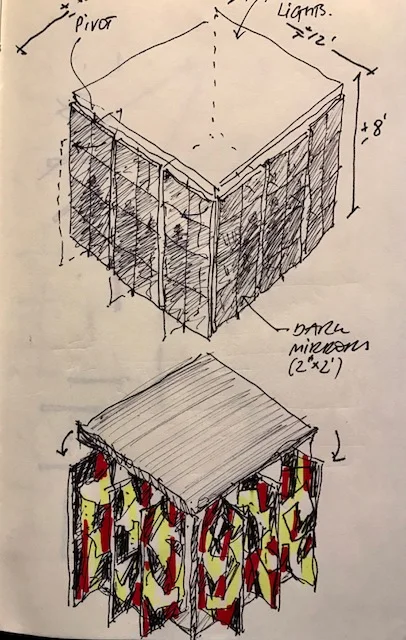 PIVOT
LIGHTS.
± 8'
DARK
MIRRORS
(2'x2')